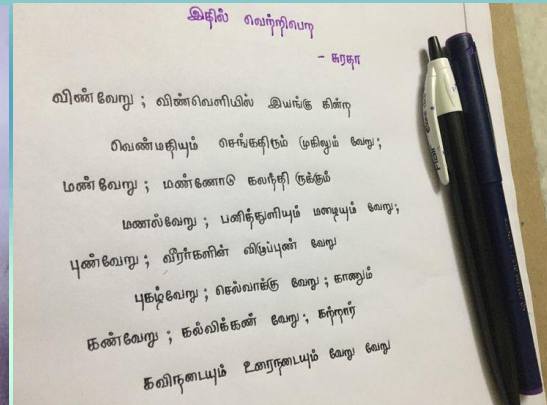 இதில் வெற்றிபெற
- சுரதா
விண்வேறு ; விண்வெளியில் இயங்கு கின்ற
வெண்மதியும் செங்கதிரும் முகிலும் வேறு ;
மண்வேறு ; மண்ணோடு கலந்தி ருக்கும்
மணல்வேறு ; பனித்துளியும் மழையும் வேறு ;
புண்வேறு ; வீரர்களின் விழுப்புண் வேறு
புகழ்வேறு ; செல்வாக்கு வேறு ; காணும்
கண்வேறு ; கல்விக்கண் வேறு ; கற்றார்
கவிநடையும் உரைநடையும் வேறு வேறு